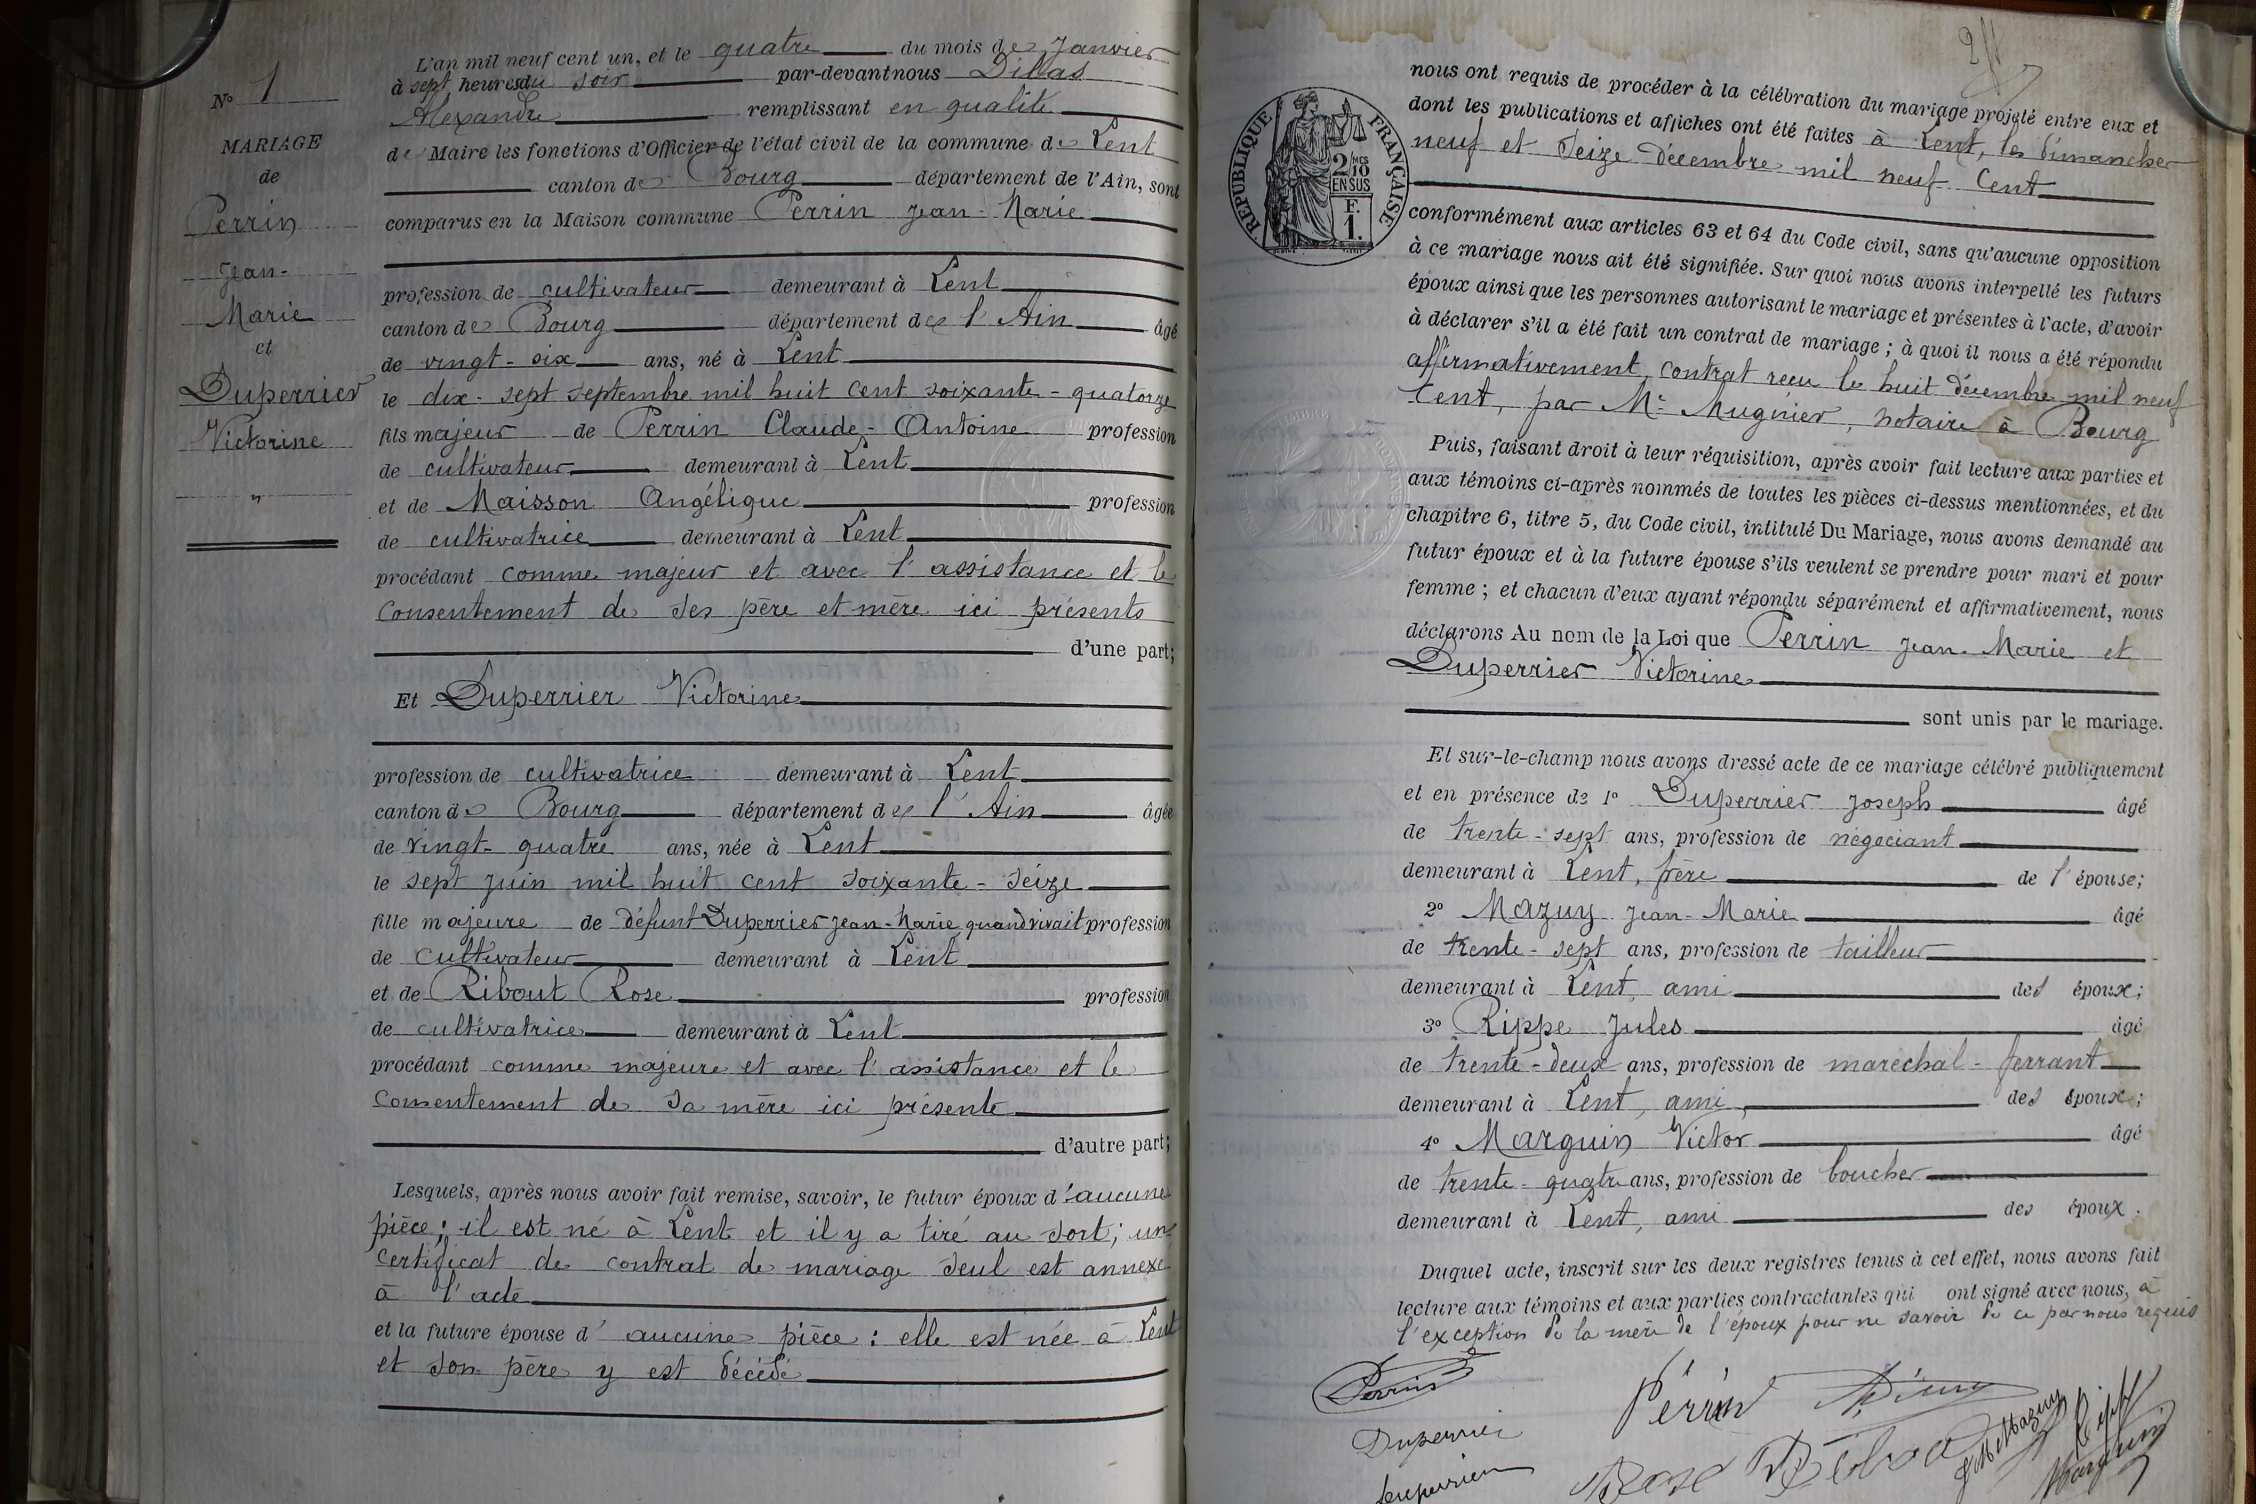 N° 1
MARIAGE
de
Perrin
Jean-
Marie
et
Duperrier
Victorine
"
L'an mil neuf cent un, et le quatre du mois de Janvier
à sept heures du soir par-devant nous Dibas
Alexandre remplissant en qualité
de Maire les fonctions d'Officier de l'état civil de la commune de Lent
canton de Bourg département de l'Ain, sont
comparus en la Maison commune Perrin Jean-Marie
profession de cultivateur demeurant à Lent
canton de Bourg département de l'Ain âgé
de vingt-six ans, né à Lent
le dix-sept septembre mil huit cent soixante-quatorze
fils majeur de Perrin Claude-Antoine profession
de cultivateur demeurant à Lent
et de Maisson Angélique profession
de cultivatrice demeurant à Lent
procédant comme majeur et avec l'assistance et le
consentement de ses père et mère ici présents
d'une part;
Et Duperrier Victorine
profession de cultivatrice demeurant à Lent
canton de Bourg département de l'Ain âgée
de vingt-quatre ans, née à Lent
le sept juin mil huit cent soixante-seize
fille majeure de défunt Duperrier Jean-Marie quand vivait profession
de cultivateur demeurant à Lent
et de Ribout Rose profession
de cultivatrice demeurant à Lent
procédant comme majeure et avec l'assistance et le
consentement de sa mère ici présente
d'autre part;
Lesquels, après nous avoir fait remise, savoir, le futur époux d'aucune
pièce; il est né à Lent et il y a tiré au sort; un
certificat de contrat de mariage seul est annexé
à l'acte
et la future épouse d'aucune pièce: elle est née à Lent
et son père y est décédé
REPUBLIQUE FRANÇAISE
2/10
EN SUS
F.
1.
nous ont requis de procéder à la célébration du mariage projeté entre eux et
dont les publications et affiches ont été faites à Lent, les dimanches
neuf et seize décembre mil neuf cent
conformément aux articles 63 et 64 du Code civil, sans qu'aucune opposition
à ce mariage nous ait été signifiée. Sur quoi nous avons interpellé les futurs
époux ainsi que les personnes autorisant le mariage et présentes à l'acte, d'avoir
à déclarer s'il a été fait un contrat de mariage; à quoi il nous a été répondu
affirmativement, contrat reçu le huit décembre mil neuf
cent, par Me Mugnier, notaire à Bourg
Puis, faisant droit à leur réquisition, après avoir fait lecture aux parties et
aux témoins ci-après nommés de toutes les pièces ci-dessus mentionnées, et du
chapitre 6, titre 5, du Code civil, intitulé Du Mariage, nous avons demandé au
futur époux et à la future épouse s'ils veulent se prendre pour mari et pour
femme; et chacun d'eux ayant répondu séparément et affirmativement, nous
déclarons Au nom de la Loi que Perrin Jean-Marie et
Duperrier Victorine
sont unis par le mariage.
Et sur-le-champ nous avons dressé acte de ce mariage célébré publiquement
et en présence de 1° Duperrier Joseph âgé
de trente-sept ans, profession de négociant
demeurant à Lent, frère de l'épouse;
2° Mazuy Jean-Marie âgé
de trente-sept ans, profession de tailleur
demeurant à Lent, ami des époux;
3° Rippe Jules âgé
de trente-deux ans, profession de maréchal-ferrant
demeurant à Lent, ami, des époux;
4° Marguin Victor âgé
de trente-quatre ans, profession de boucher
demeurant à Lent, ami des époux.
Duquel acte, inscrit sur les deux registres tenus à cet effet, nous avons fait
lecture aux témoins et aux parties contractantes qui ont signé avec nous, à
l'exception de la mère de l'époux pour ne savoir de ce par nous requis
Perrin Perrin
Duperrier JM Mazuy
Duperrier Rose Marguin